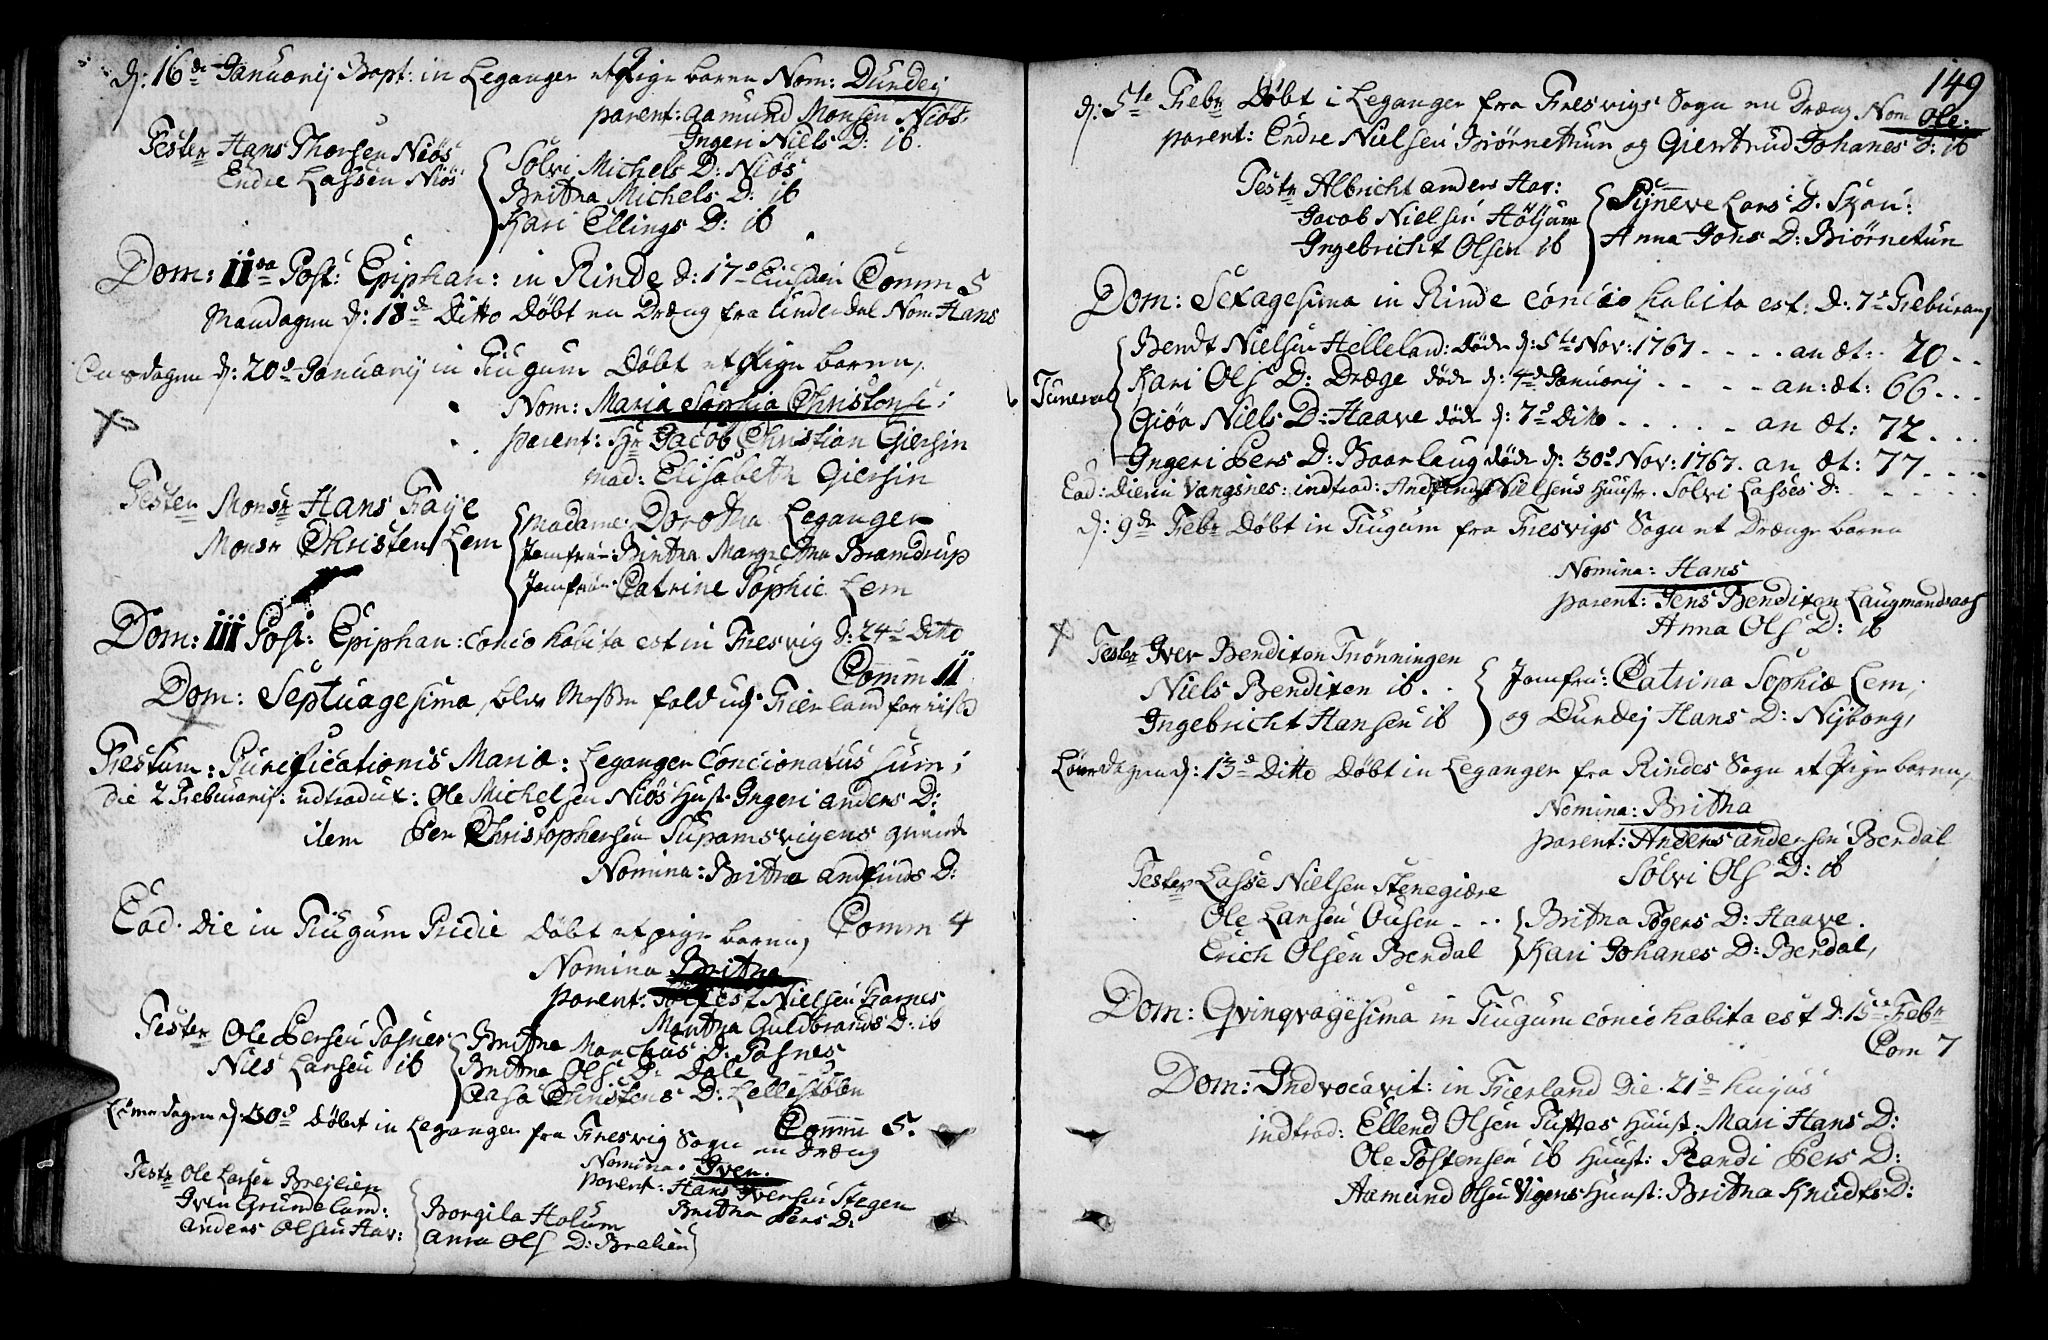 d: 16de Januarij Bapt: in Leganger et Pige baren Nom: Durdej
parent: Aamund Monsen Niøs.
Ingeri Niels D: ib.
Tester Hans Thorsen Niøs
Endre Lassen Niøs
Sølvi Michels D: Niøs
Britha Michels D: ib
Kari Ellings D: ib
Dom: IIda Post: Epiphan: in Rinde d: 17d Eiusdem Comm 5
Mandagen d: 18de Ditto Døbt en Dræng fra Underdal Nom Hans
Onsdagen d: 20d Januarij in Tiugum Døbt et Pige baren,
Nom: Maria Sophia Christense:
parent: Hr Jacob Christian Giersin
mad: Elisabeth Giersin
Tester Monsr Hans Faye
Monsr Christen Lem
Madame: Dorothea Leganger
Jomfru: Britha Margretha Bramdrup
Jomfru: Catrine Sophie Lem
Dom: III Post: Epiphan: concio habita est in Fresvig d: 24d Ditto
Comm 11
Dom: Septuagesima, blev Messen fald udj Fierland for
Festum: Purificationis Mariæ: Leganger Concionatus sum;
die 2 Februarij: introdux: Ole Michelsen Niøs Hust: Ingeri Anders D:
item Per Christophersen Supamsvigens qvinde
Nomina: Britha Andfinds D:
Ead. Die in Tiugum Døbt et pige baren, Comm 4
Nomina Britha
parent: Tolfest Nielsen Farnes
Martha Guldbrands D: ib
Tester Ole Persen Fosnes
Niels Larsen ib
Britha Marchus D: Fosnes
Britha Ols D: Dale
Aasa Christens D: Lellestølen
Comm 5.
Løverdagen d: 30d Døbt in Leganger fra Fresvig Sogn en Dræng
Nomina: Iver.
parent: Hans Iversen Stegen
Britha Pers D:
Testr Ole Larsen Brejlien
Iver Grundeland:
Anders Olsen Hav:
Borgila Holum
Anna Ols D: Brelien
149
d: 5te Febr Døbt i Leganger fra Fresvigs Sogn en Dræng Nom Ole:
parent: Endre Nielsen Biørnethun og Giertrud Johanes D: ib
Testr Albricht Anders Hav:
Jacob Nielsen Høljum
Ingebricht Olsen ib
Synneve Lars D. Skou:
Anna Johs D: Biørnetun
Dom: Sexagesima in Rinde concio habita est: d: 7d Februarij
Funeral
Bendt Nielsen Helleland: døde d: 5te Nov: 1767. . . . an æt: 20 . .
Kari Ols D: Dræge døde d: 4d Januarij . . . . an: æt: 66 . . .
Giøa Niels D: Haave døde d: 7d Ditto . . . . . an æt: 72 . . .
Ingeri Pers D: Baarlaug døde d: 30d Nov: 1767. an æt: 77 . . .
Ead: Die in Vangsnes: introd: Andfind Nielsens Huust: Sølvi Lasses D: . . . .
d: 9de Febr Døbt in Tiugum fra Fresvigs Sogn et Drænge baren
Nomina: Hans
parent: Jens Bendixen Laugmandsaas
Anna Ols D: ib
Tester Iver Bendixen Trønningen
Niels Bendixen ib . .
Ingebricht Hansen ib
Jomfru: Catrina Sophia Lem,
og Durdej Hans D: Nijborg,
Løverdagen d: 13d Ditto Døbt in Leganger fra Rindes Sogn et Pige baren,
Nomina: Britha
parent: Anders Andersen Bendal
Sølvi Ols D: ib
Tester Lasse Nielsen Stenegiære
Ole Larsen Ousen . . .
Erich Olsen Bendal
Britha Togers D: Haave.
Kari Johanes D: Bendal,
Dom: Qvinqvagesima in Tiugum concio habita est d: 15de Febr
Com 7
Dom: Invocavit: in Fierland Die. 21d hujus
introd: Ellend Olsen Tuftes Huust: Mari Hans D:
Ole Tostensen ib Huust: Randi Pers D:
Aamund Olsen Vigens Huust: Britha Knuds D: